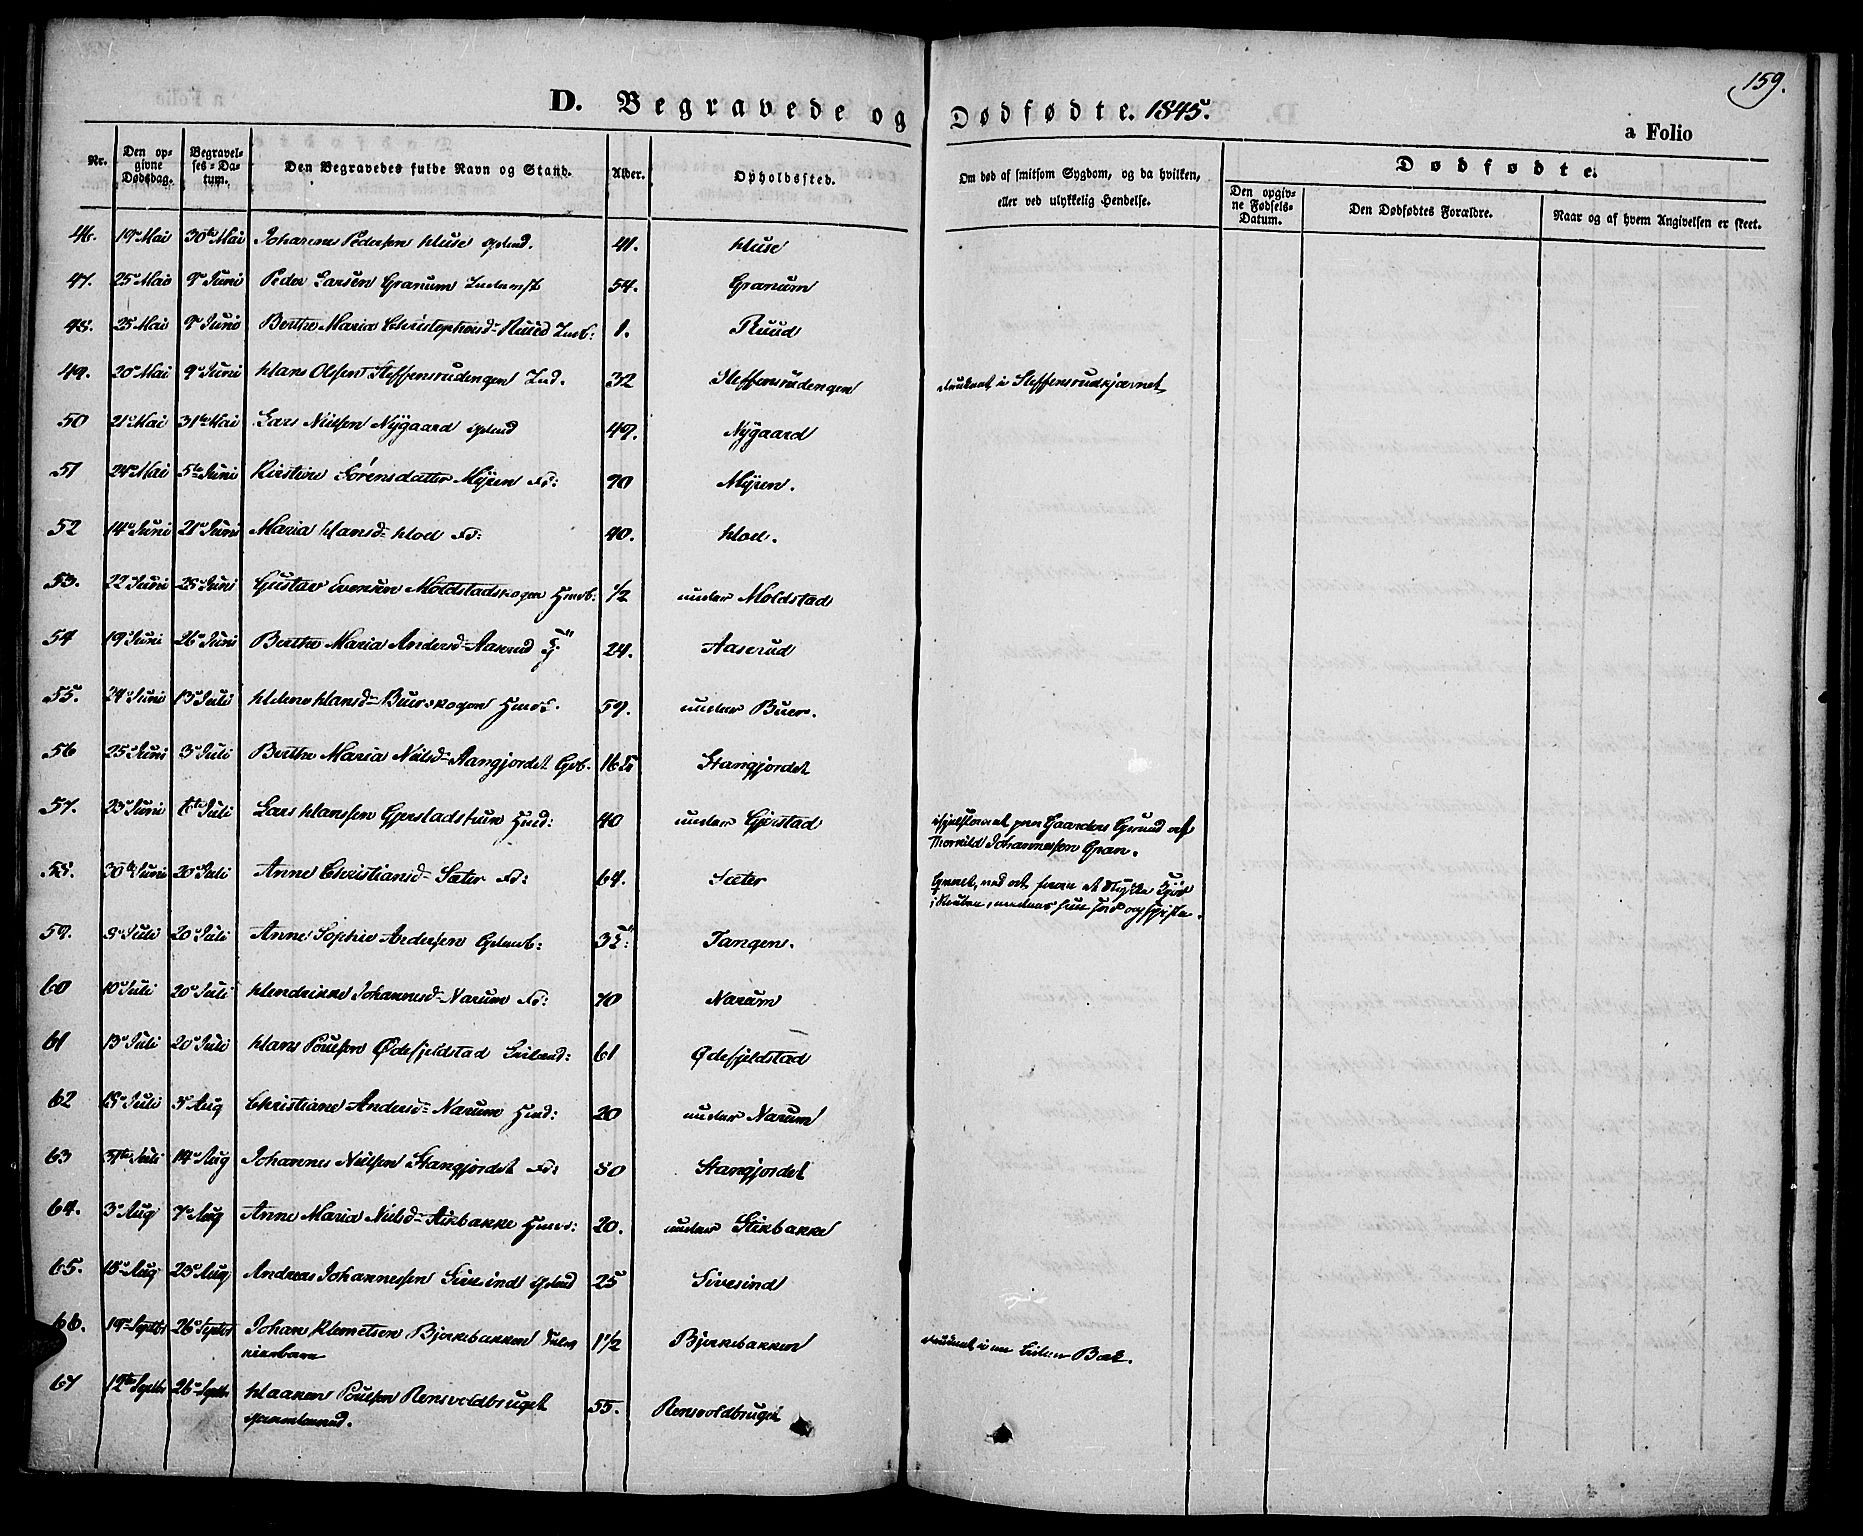 159.
D. Begravede og Dødfødte. 1845.
a Folio
Nr. Den opgivne Dødsdag. Begravelses-Datum. Den Begravedes fulde Navn og Stand. Alder. Opholdssted. Om død af smitsom Sygdom, og da hvilken, eller ved ulykkelig Hendelse. Dødfødte.
Den opgivne Fødsels-Datum. Den Dødfødtes Forældre. Naar og af hvem Angivelsen er skeet.
46. 19 Mai 30te Mai Johannes Pedersen Huse 41. Huse
47. 25 Mai 9 Juni Peder Larsen Granum 54. Granum
48. 25 Mai 9 Juni Berthe Maria Christophersd- Ruud Indb: 1. Ruud
49. 20 Mai 9 Juni Hans Olsen Steffensrudengen Ind. 32 Steffensrudengen druknet i Steffensrudkjærnet
50 21 Mai 31te Mai Lars Nielsen Nygaard 49. Nygaard
51 24 Mai 5te Juni Kirstine Sörensdatter Myren Fd: 70 Myren.
52 14 Juni 21 Juni Maria Hansd- Hoel Fd: 40. Hoel.
53. 22 Juni 28 Juni Gustav Evensen Moldstadskogen Husb: 1/2 under Moldstad
54 19 Juni 26 Juni Berthe Maria Andersd- Aaserud 24. Aaserud
55. 24 Juni 13 Juli Helene Hansd- Buerskogen 59. under Buer.
56 25 Juni 3 Juli Berthe Maria Nielsd- Stangjordet Gdb. Stangjordet
57. 23 Juni Juli Lars Hanssen Gjerstadstuen Husd: 40 under Gjerstad ihjelslaaet paa Gaardens Grund af
Thorkild Johannessen Gran.
58. 30te Juni 20 Juli Anne Christiansd- Sæter Fd: 64. Sæter
59. 8 Juli 20 Juli Anne Sophie Andersen Tangen.
60 10 Juli 20 Juli Hendrikke Johannesd- Narum Fd: 70 Narum
61 13 Juli 20 Juli Hans Poulsen Ødefjeldstad 61 Ødefjeldstad
62 18 Juli 3 Aug Christiane Andersd- Narum Husd: 20 under Narum
63 Juli 14 Aug Johannes Nielsen Stangjordet Fd: 80 Stangjordet
64. 3 Aug 7 Aug Anne Maria Nielsd- Stikbakke 20. under Stikbakke
65. 15 Aug 23 Aug Andreas Johannessen Sivesind 25 Sivesind
66. 19 Septbr 26 Septbr Johan Klemetsen Bjerkebakken 1 1/2 Bjerkebakken druknet i en liden Bæk.
67 12te Septbr 26 Septbr Haaken Poulsen Rensvoldbruget 55. Rensvoldbruget